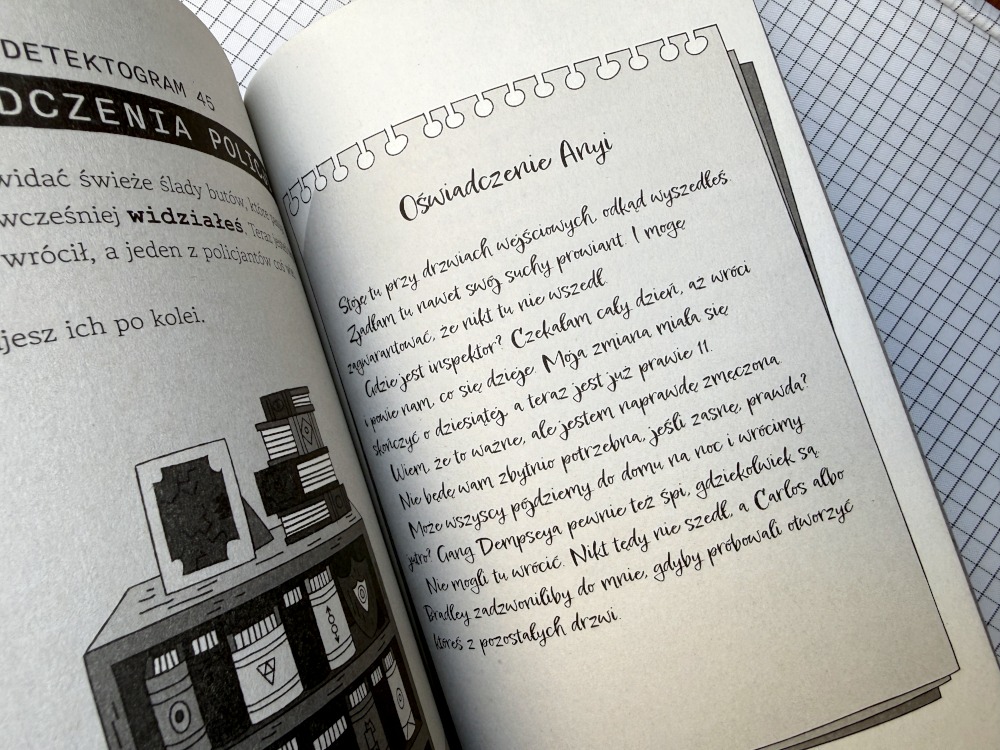 DETEKTOGRAM 45
DCZENIA POLIC
widać świeże ślady butów, które
wcześniej widziałeś. Teraz
wrócił, a jeden z policjantów coś
jesz ich po kolei.
Oświadczenie Anyi
Stoję tu przy drzwiach wejściowych, odkąd wyszedłeś.
Zjadłam tu nawet swój suchy prowiant. I mogę
zagwarantować, że nikt tu nie wszedł.
Gdzie jest inspektor? Czekałam cały dzień, aż wróci
i powie nam, co się dzieje. Moja zmiana miała się
skończyć o dziesiątej, a teraz jest już prawie 11.
Wiem, że to ważne, ale jestem naprawdę zmęczona.
Nie będę wam zbytnio potrzebna, jeśli zasnę, prawda?
Może wszyscy pójdziemy do domu na noc i wrócimy
jutro? Gang Dempseya pewnie też śpi, gdziekolwiek są.
Nie mogli tu wrócić. Nikt tędy nie szedł, a Carlos albo
Bradley zadzwoniliby do mnie, gdyby próbowali otworzyć
któreś z pozostałych drzwi.